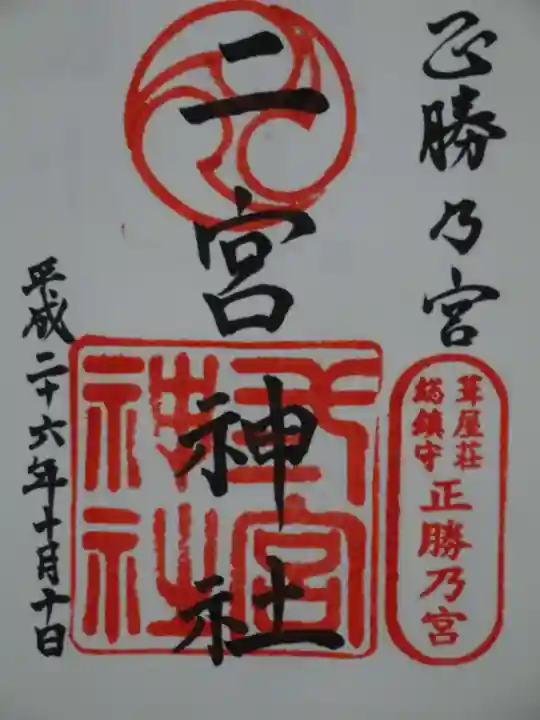 正勝乃宮
葺屋荘
総鎮守
正勝乃宮
二宮神社
二宮神社
平成二十六年十月十日